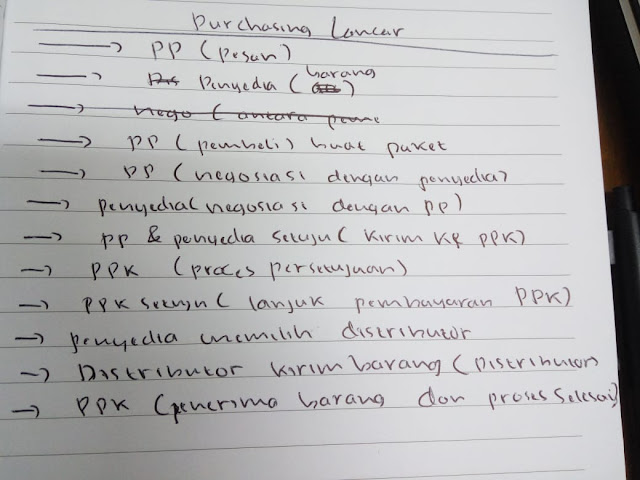 Purchasing Lancar
→ PP (pesan)
→ Penyedia (barang)
→ nego (antara
→ PP (pembeli) buat paket
→ PP (negosiasi dengan penyedia)
→ penyedia (negosiasi dengan PP)
→ PP & penyedia setuju (kirim ke PPK)
→ PPK (proses persetujuan)
→ PPK setuju (lanjuk pembayaran PPK)
→ penyedia memilih distributor
→ Distributor kirim barang (Distributor)
→ PPK (penerima barang dan proses selesai)